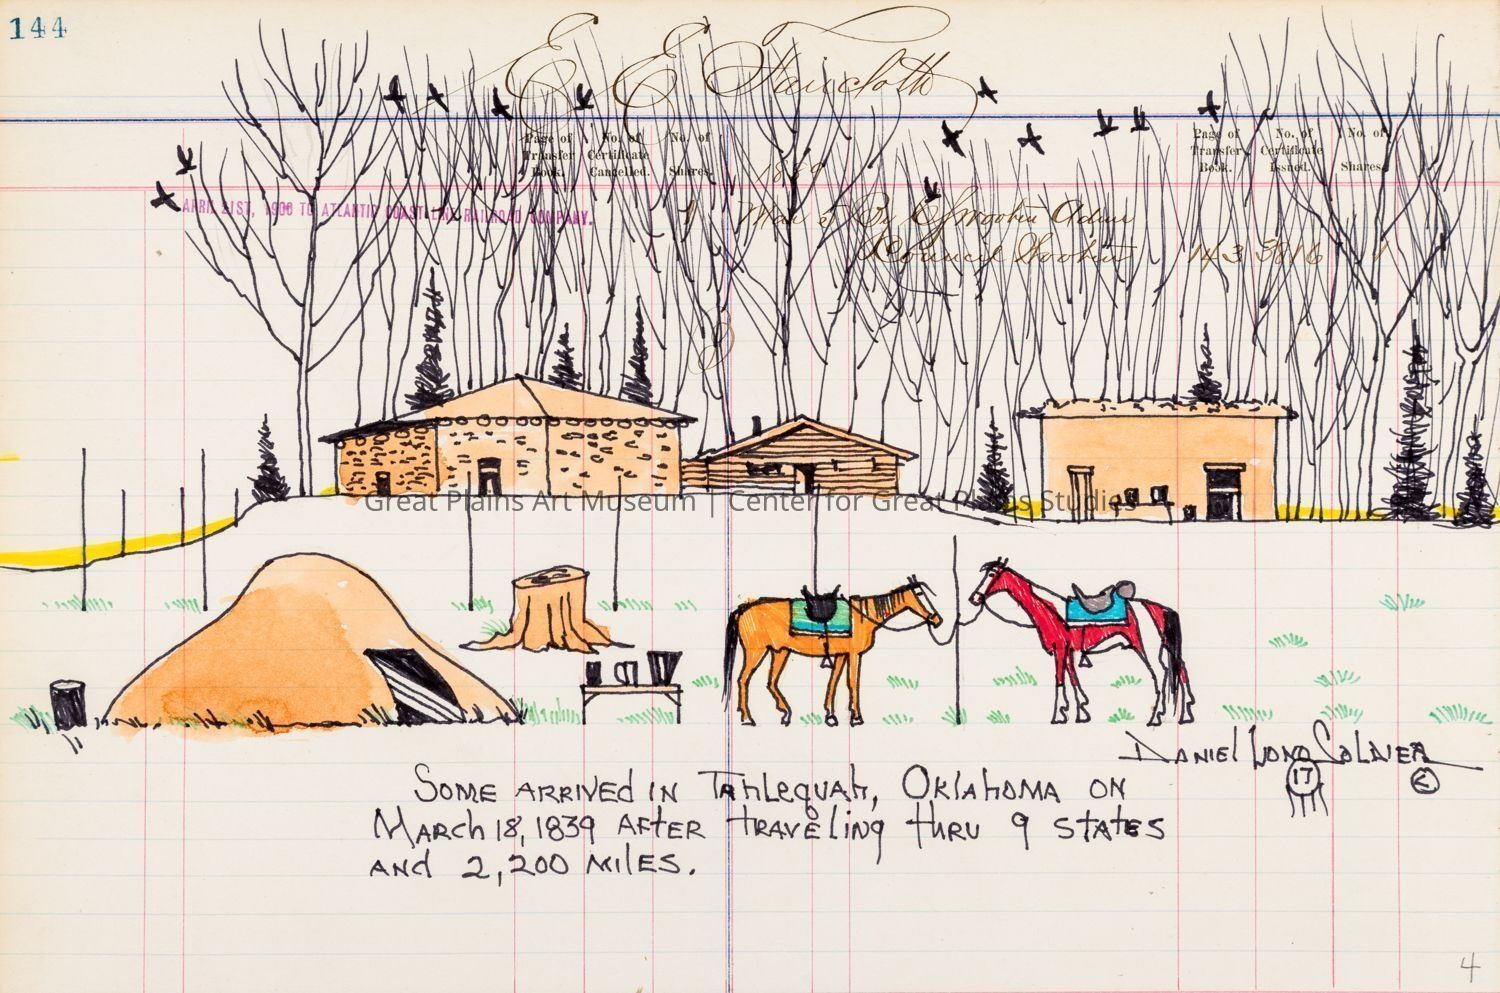 144
E. E. Faircloth
Page of Transfer Book.
No. of Certificate Cancelled.
No. of Shares.
Page of Transfer Book.
No. of Certificate Issued.
No. of Shares.
APRIL 21ST, 1900 TO ATLANTIC COAST LINE RAILROAD COMPANY.
Great Plains Art Museum | Center for Great Plains Studies
DANIEL LONG SOLDIER
17
SOME ARRIVED IN TAHLEQUAH, OKLAHOMA ON
MARCH 18, 1839 AFTER TRAVELING THRU 9 STATES
AND 2,200 MILES.
4